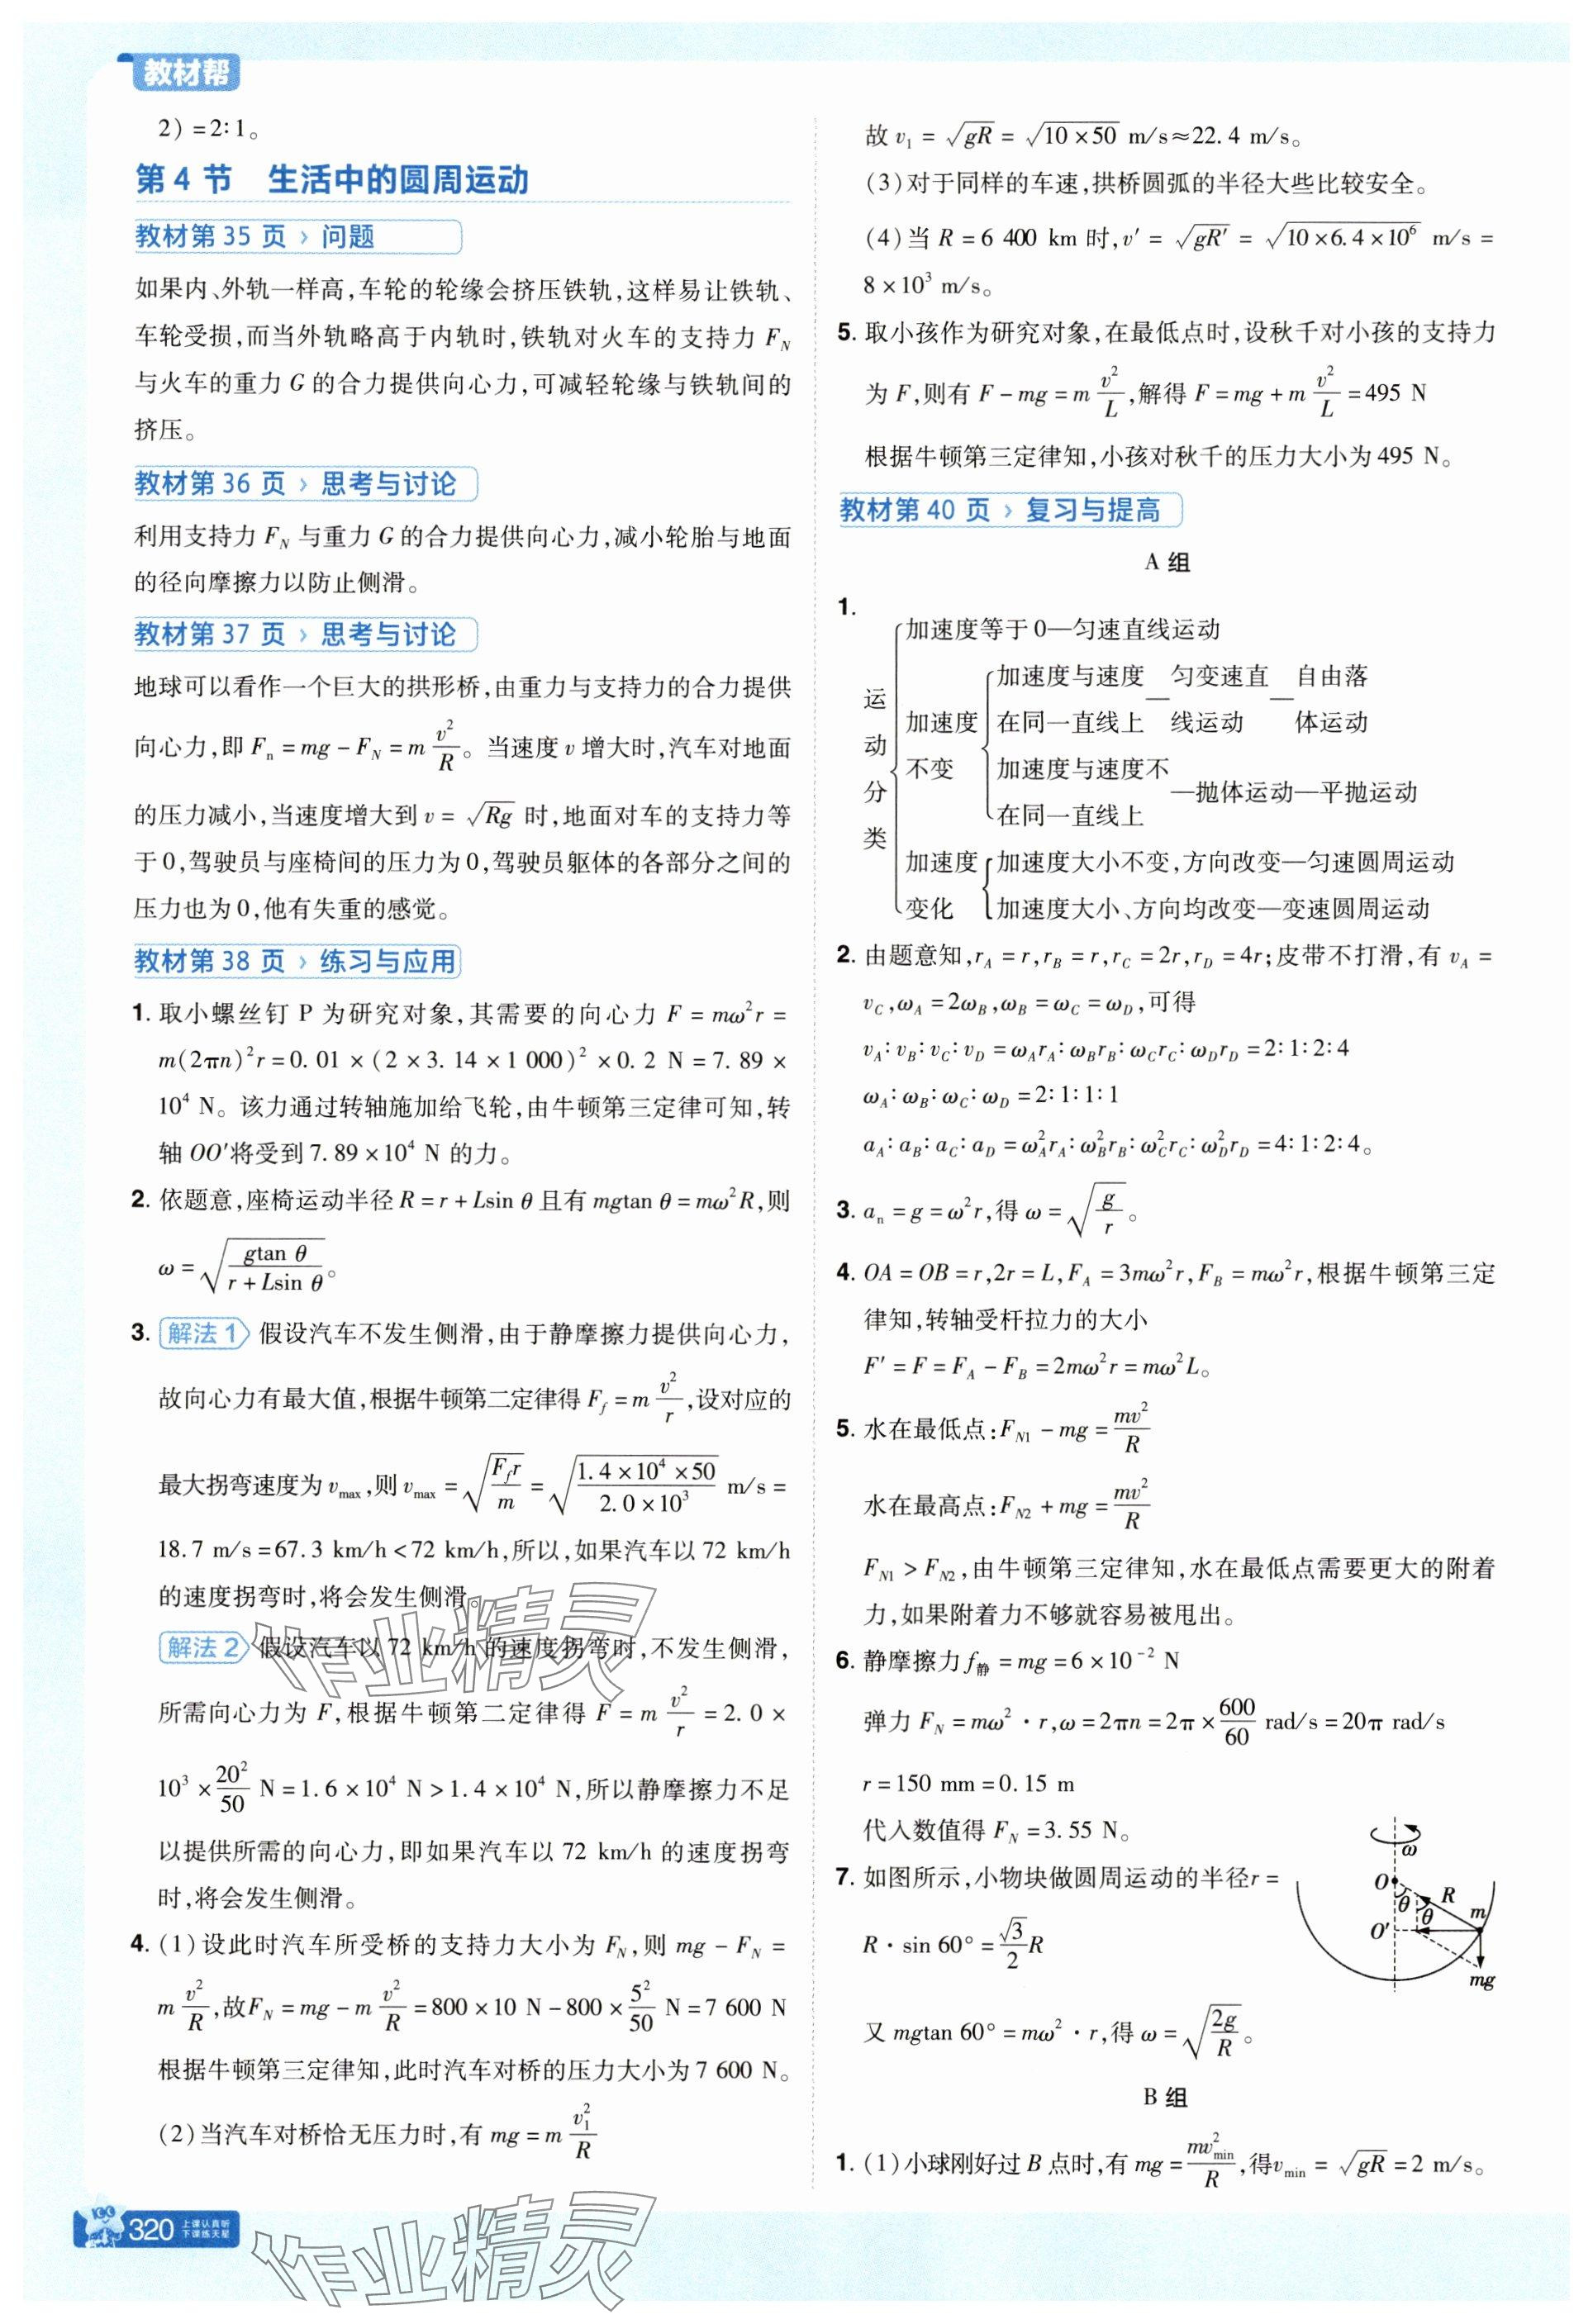 教材帮
2)=2∶1。
第 4 节　生活中的圆周运动
教材第 35 页 › 问题
如果内、外轨一样高,车轮的轮缘会挤压铁轨,这样易让铁轨、
车轮受损,而当外轨略高于内轨时,铁轨对火车的支持力 F_N
与火车的重力 G 的合力提供向心力,可减轻轮缘与铁轨间的
挤压。
教材第 36 页 › 思考与讨论
利用支持力 F_N 与重力 G 的合力提供向心力,减小轮胎与地面
的径向摩擦力以防止侧滑。
教材第 37 页 › 思考与讨论
地球可以看作一个巨大的拱形桥,由重力与支持力的合力提供
向心力,即 F_n = mg − F_N = m v²/R。当速度 v 增大时,汽车对地面
的压力减小,当速度增大到 v = √(Rg) 时,地面对车的支持力等
于 0,驾驶员与座椅间的压力为 0,驾驶员躯体的各部分之间的
压力也为 0,他有失重的感觉。
教材第 38 页 › 练习与应用
1. 取小螺丝钉 P 为研究对象,其需要的向心力 F = mω²r =
m(2πn)²r = 0.01 × (2 × 3.14 × 1 000)² × 0.2 N = 7.89 ×
10⁴ N。该力通过转轴施加给飞轮,由牛顿第三定律可知,转
轴 OO′将受到 7.89 × 10⁴ N 的力。
2. 依题意,座椅运动半径 R = r + Lsin θ 且有 mgtan θ = mω²R,则
ω = √(gtan θ/(r + Lsin θ))。
3. 解法 1 假设汽车不发生侧滑,由于静摩擦力提供向心力,
故向心力有最大值,根据牛顿第二定律得 F_f = m v²/r,设对应的
最大拐弯速度为 v_max,则 v_max = √(F_f r/m) = √(1.4 × 10⁴ × 50/2.0 × 10³) m/s =
18.7 m/s = 67.3 km/h < 72 km/h,所以,如果汽车以 72 km/h
的速度拐弯时,将会发生侧滑。
解法 2 假设汽车以 72 km/h 的速度拐弯时,不发生侧滑,
所需向心力为 F,根据牛顿第二定律得 F = m v²/r = 2.0 ×
10³ × 20²/50 N = 1.6 × 10⁴ N > 1.4 × 10⁴ N,所以静摩擦力不足
以提供所需的向心力,即如果汽车以 72 km/h 的速度拐弯
时,将会发生侧滑。
4. (1)设此时汽车所受桥的支持力大小为 F_N,则 mg − F_N =
m v²/R,故F_N = mg − m v²/R = 800 × 10 N − 800 × 5²/50 N = 7 600 N
根据牛顿第三定律知,此时汽车对桥的压力大小为 7 600 N。
(2)当汽车对桥恰无压力时,有 mg = m v₁²/R
320 上课认真听
下课练天星
故 v₁ = √(gR) = √(10 × 50) m/s≈22.4 m/s。
(3)对于同样的车速,拱桥圆弧的半径大些比较安全。
(4)当 R = 6 400 km 时,v′ = √(gR′) = √(10 × 6.4 × 10⁶) m/s =
8 × 10³ m/s。
5. 取小孩作为研究对象,在最低点时,设秋千对小孩的支持力
为 F,则有 F − mg = m v²/L,解得 F = mg + m v²/L = 495 N
根据牛顿第三定律知,小孩对秋千的压力大小为 495 N。
教材第 40 页 › 复习与提高
A 组
1.
运动分类
加速度等于 0—匀速直线运动
加速度不变
加速度与速度在同一直线上—匀变速直线运动—自由落体运动
加速度与速度不在同一直线上—抛体运动—平抛运动
加速度变化
加速度大小不变,方向改变—匀速圆周运动
加速度大小、方向均改变—变速圆周运动
2. 由题意知,r_A = r,r_B = r,r_C = 2r,r_D = 4r;皮带不打滑,有 v_A =
v_C,ω_A = 2ω_B,ω_B = ω_C = ω_D,可得
v_A∶v_B∶v_C∶v_D = ω_A r_A∶ω_B r_B∶ω_C r_C∶ω_D r_D = 2∶1∶2∶4
ω_A∶ω_B∶ω_C∶ω_D = 2∶1∶1∶1
a_A∶a_B∶a_C∶a_D = ω_A² r_A∶ω_B² r_B∶ω_C² r_C∶ω_D² r_D = 4∶1∶2∶4。
3. a_n = g = ω²r,得 ω = √(g/r)。
4. OA = OB = r,2r = L,F_A = 3mω²r,F_B = mω²r,根据牛顿第三定
律知,转轴受杆拉力的大小
F′ = F = F_A − F_B = 2mω²r = mω²L。
5. 水在最低点:F_N1 − mg = mv²/R
水在最高点:F_N2 + mg = mv²/R
F_N1 > F_N2,由牛顿第三定律知,水在最低点需要更大的附着
力,如果附着力不够就容易被甩出。
6. 静摩擦力 f_静 = mg = 6 × 10⁻² N
弹力 F_N = mω² · r,ω = 2πn = 2π × 600/60 rad/s = 20π rad/s
r = 150 mm = 0.15 m
代入数值得 F_N = 3.55 N。
7. 如图所示,小物块做圆周运动的半径r =
R · sin 60° = √3/2 R
又 mgtan 60° = mω² · r,得 ω = √(2g/R)。
ω
O
θ
R
θ
m
O′
mg
B 组
1. (1)小球刚好过 B 点时,有 mg = mv²_min/R,得v_min = √(gR) = 2 m/s。
作业精灵
作业精灵